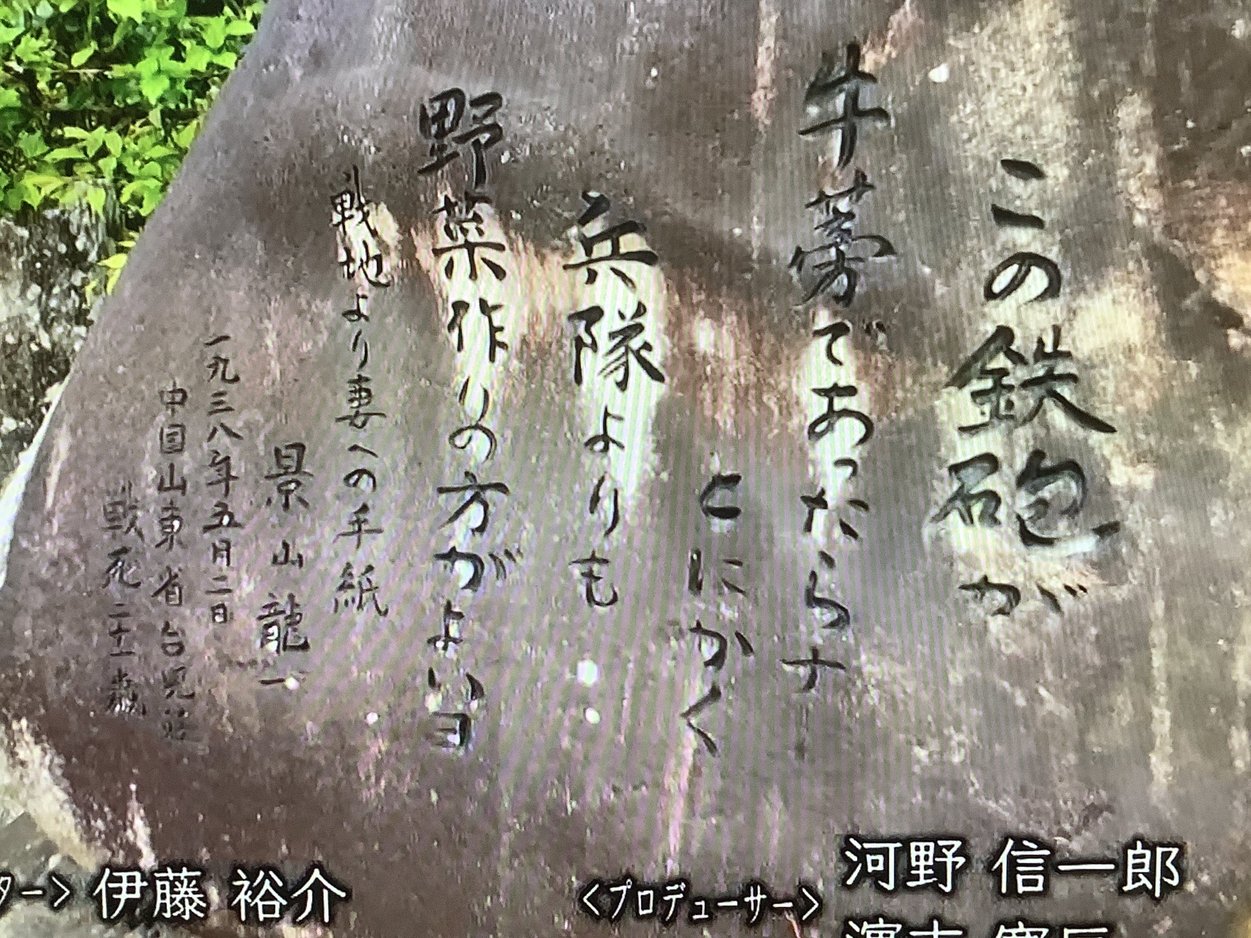 この鉄砲が
牛蒡であったらナ
とにかく
兵隊よりも
野菜作りの方がよいヨ
戦地より妻への手紙
景山龍一
一九三八年五月二日
中国山東省台児荘
戦死二十一歳
ター> 伊藤 裕介
<プロデューサー> 河野 信一郎